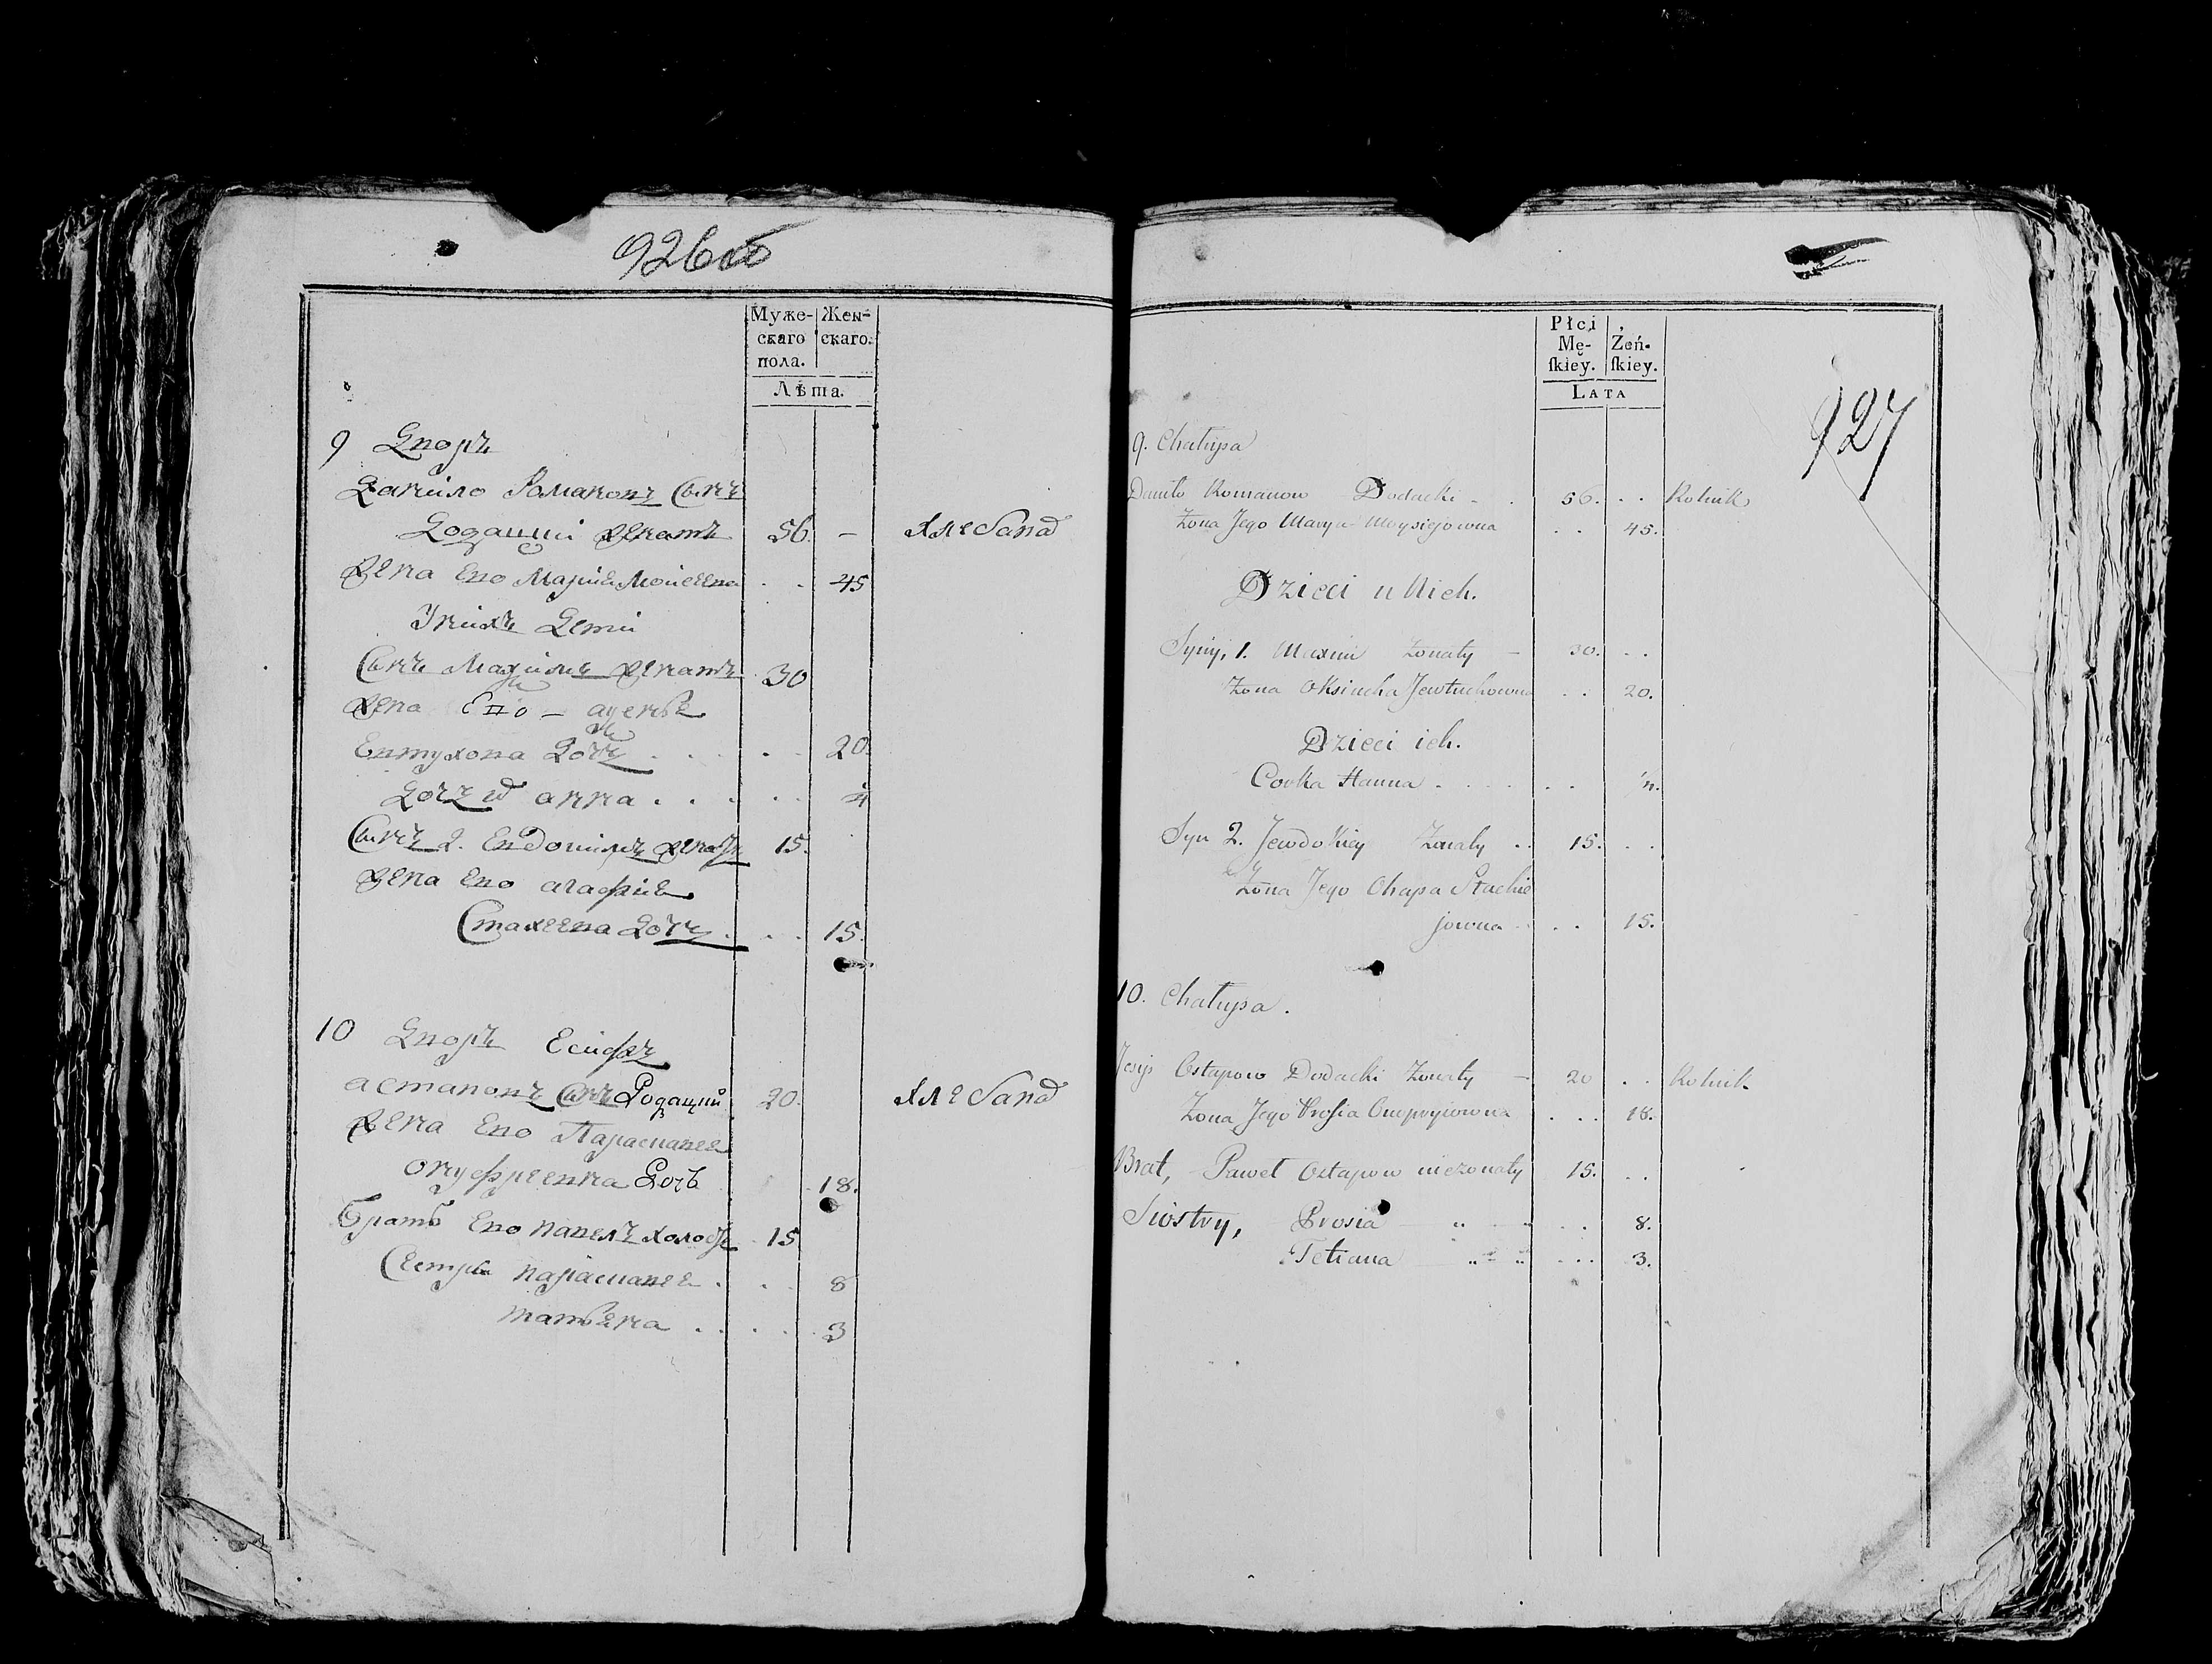 926 об
Муже-
скаго
пола.
Жен-
скаго.
Лѣта.
9 Дворъ
Данило Романовъ Сынъ
Додацкий женатъ 56. –
жена Его Мария Моисеева . . 45
У нихъ Дети
Сынъ Махимъ женатъ 30
жена Его –
Евтухова Дочь . . 20.
Дочь анна . . . . . 4
Сынъ 2. Евдокимъ женатъ 15.
жена Его агафия
Стахеева Дочь . . . 15.
10 Дворъ Есифъ
астаповъ Сынъ Додацкий 20.
жена Его Параскавея
онуфреевна Дочь 18.
Братъ Его павелъ холостъ 15
Сестры параскавея . . 8
татьяна . . . . 3
Płci
Mę-
ſkiey.
Żeń-
ſkiey.
LATA
927
9. Chałupa
Daniło Romanow Dodacki - . 56. . . Rolnik
Żona Jego Marya Moysiejowna . . 45.
Dzieci u Nich.
Syny, 1. Maxim Żonaty – 30. . .
Żona Oksiucha Jewtuchowna . . 20.
Dzieci ich.
Corka Hanna . . . . . . 4.
Syn 2. Jewdokiey Żonaty . . 15. . .
Żona Jego Ohapa Stachie
jowna . . . 15.
10. Chałupa .
Jesyp Ostapow Dodacki Żonaty – 20 . . Rolnik
Żona Jego Prosia Onupryiowna . . . 18.
Brat, Paweł Ostapow nieżonaty 15. . .
Siostry, Prosia . . 8.
Tetiana . . . 3.